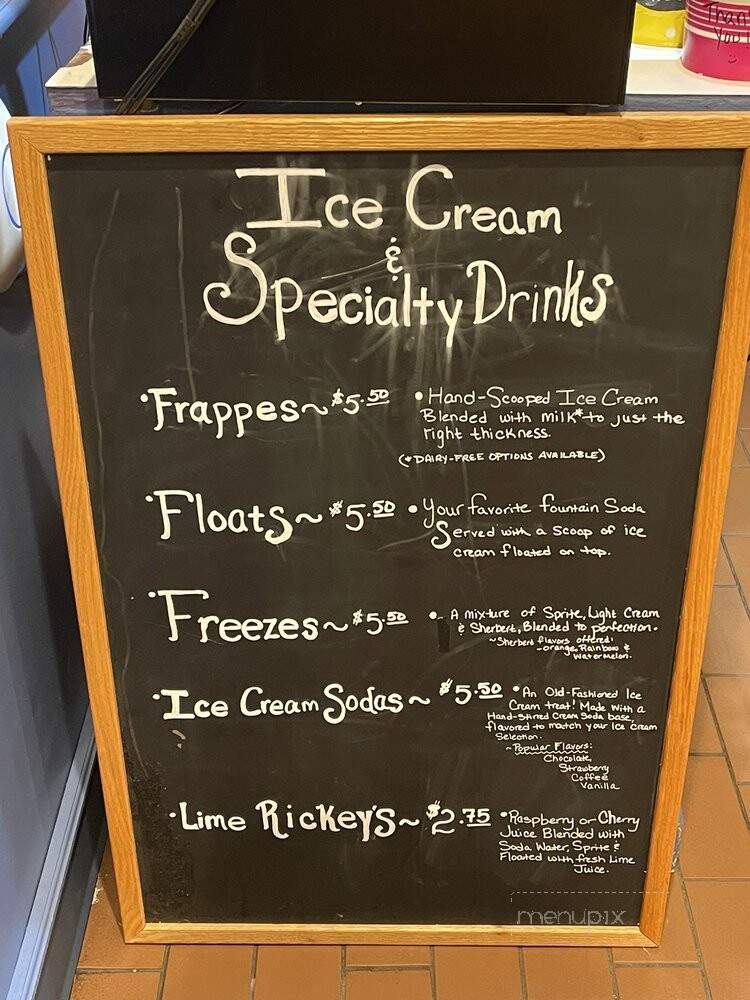 Thank
You!
Ice Cream
&
Specialty Drinks
•Frappes~ $5.50
• Hand-Scooped Ice Cream
Blended with milk* to just the
right thickness.
(*DAIRY-FREE OPTIONS AVAILABLE)
•Floats~ $5.50
• Your favorite fountain Soda
Served with a scoop of ice
cream floated on top.
•Freezes~ $5.50
• A mixture of Sprite, Light Cream
& Sherbert, Blended to perfection.
~Sherbert flavors offered:
-orange, Rainbow &
Watermelon.
•Ice Cream Sodas~ $5.50
• An Old-Fashioned Ice
Cream treat! Made With a
Hand-stirred Cream Soda base,
flavored to match your Ice Cream
Selection.
~Popular Flavors:
Chocolate,
Strawberry
Coffee
Vanilla
•Lime Rickey's~ $2.75
•Raspberry or Cherry
Juice Blended with
Soda Water, Sprite &
Floated with fresh Lime
Juice.
menupix